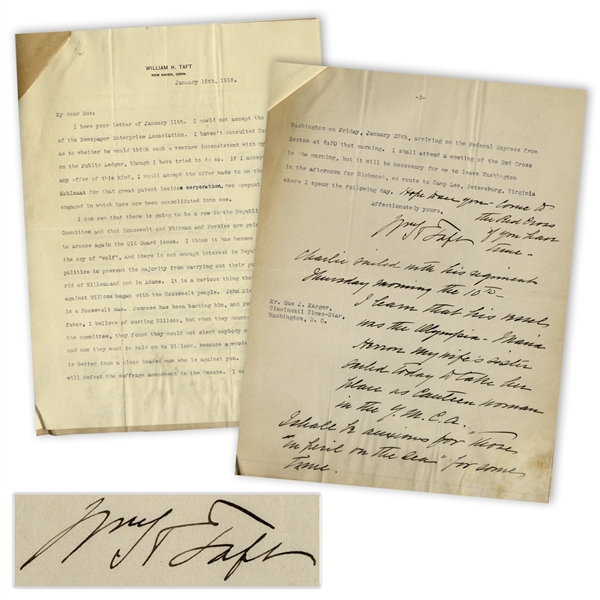 WILLIAM H. TAFT
NEW HAVEN, CONN.
January 15th, 1918.
My dear Gus:
I have your letter of January 11th. I could not accept the
of the Newspaper Enterprise Association. I haven't consulted
as to whether he would think such a venture inconsistent with my
on the Public Ledger, though I have tried to do so. If I accept
any offer of this kind, I would accept the offer made to me
Kohlsaat for that great patent insides corporation, two
engaged in which have now been consolidated into one.
I can see that there is going to be a row in the Republi
Committee and that Roosevelt and Whitman and Perkins are
to arouse again the Old Guard issue. I think it has become
the cry of "wolf", and there is not enough interest in
politics to prevent the majority from carrying out their
rid of Willcox and put in Adams. It is a curious thing
against Willcox began with the Roosevelt people. John
is a Roosevelt man. Penrose has been backing him, and
favor. I believe of ousting Willcox, but when they
the committee, they found they could not elect anybody
and now they want to hold on to Willcox, because a
is better than a clear headed man who is against you.
will defeat the suffrage amendment in the Senate. I
-2-
Washington on Friday, January 25th, arriving on the Federal Express from
Boston at 8;30 that morning. I shall attend a meeting of the Red Cross
in the morning, but it will be necessary for me to leave Washington
in the afternoon for Richmond, en route to Camp Lee, Petersburg, Virginia
where I speak the following day. Hope you come to
the Red Cross
if you have
time -
Affectionately yours,
Wm H Taft
Charlie sailed with his regiment
Thursday morning the 10th -
I learn that his vessel
was the Olympia - Maria
Herron my wife's sister
sailed today to take her
place as Canteen woman
in the Y.M.C.A.
I shall be anxious for "those
in peril on the sea" for some
time.
Mr. Gus J. Karger,
Cincinnati Times-Star,
Washington, D. C.
Wm H Taft